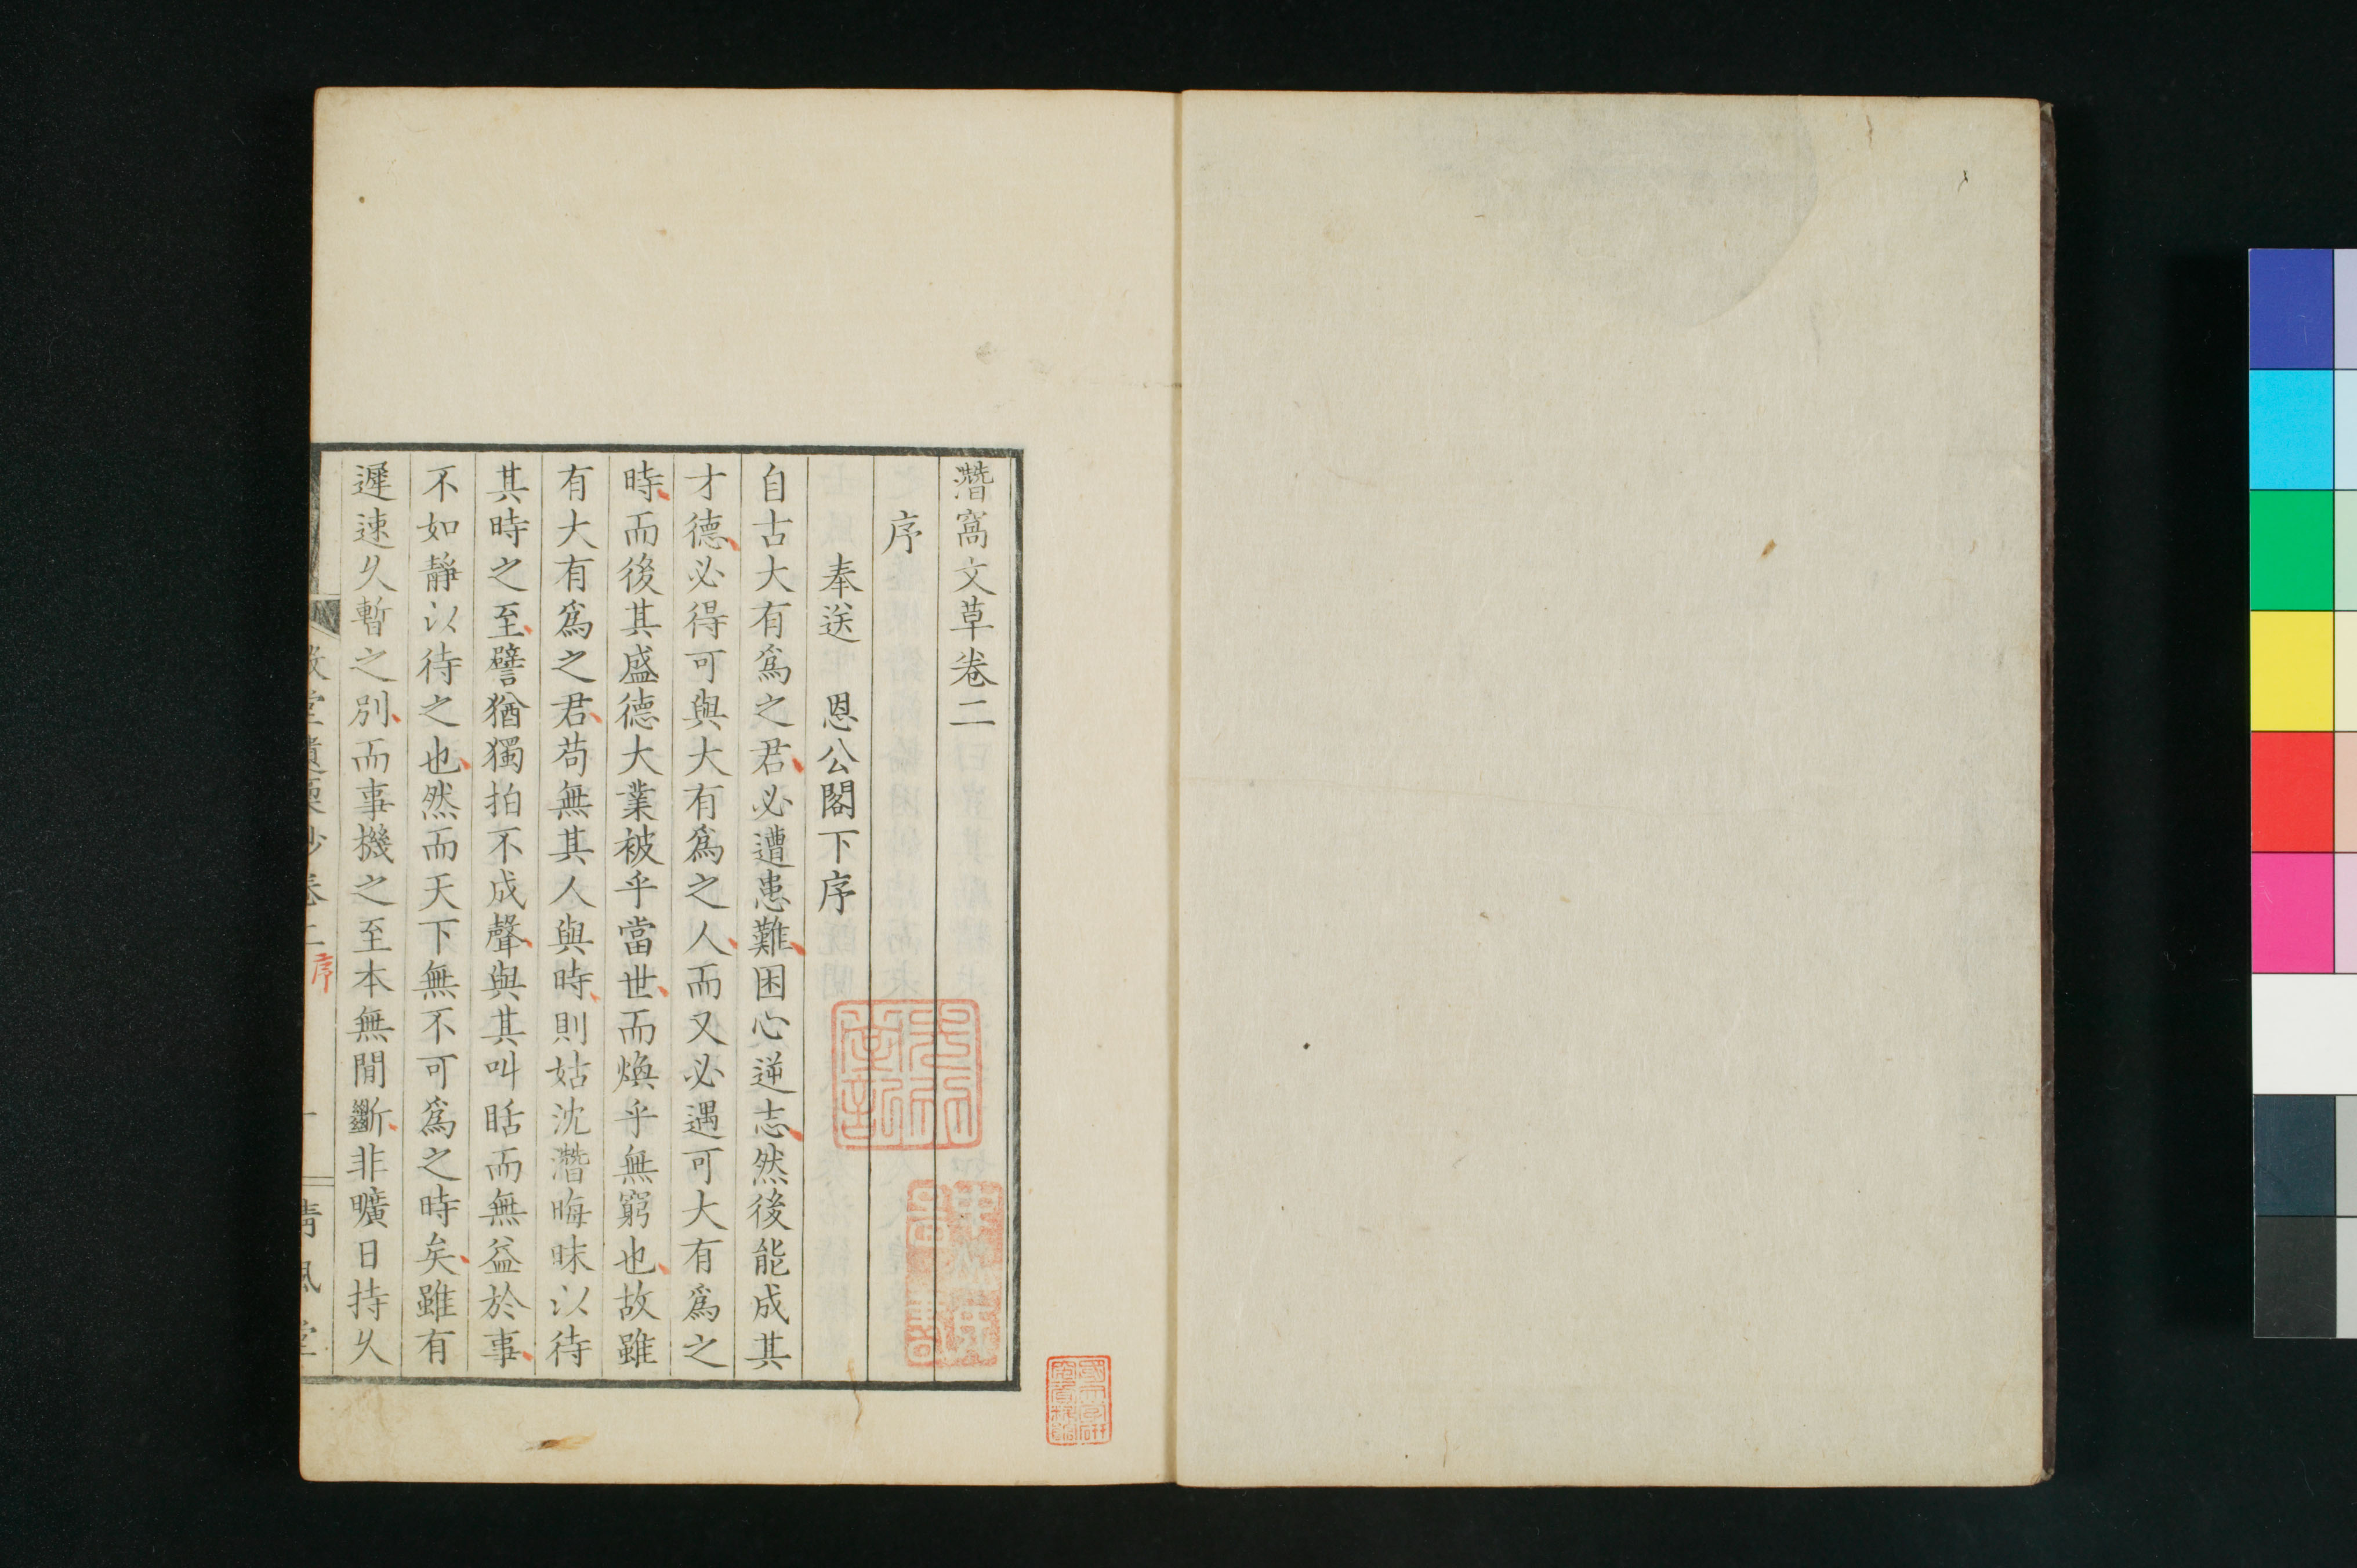 潛窩文草卷二
序
奉送　恩公閣下序
自古大有爲之君必遭患難困心逆志然後能成其
才德必得可與大有爲之人而又必遇可大有爲之
時而後其盛德大業被乎當世而煥乎無窮也故雖
有大有爲之君苟無其人與時則姑沈潛晦昧以待
其時之至譬猶獨拍不成聲與其叫聒而無益於事
不如靜以待之也然而天下無不可爲之時矣雖有
遲速久暫之別而事機之至本無間斷非曠日持久
序